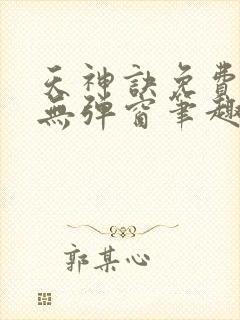 天神訣免費
無彈窗筆趣
郭某心